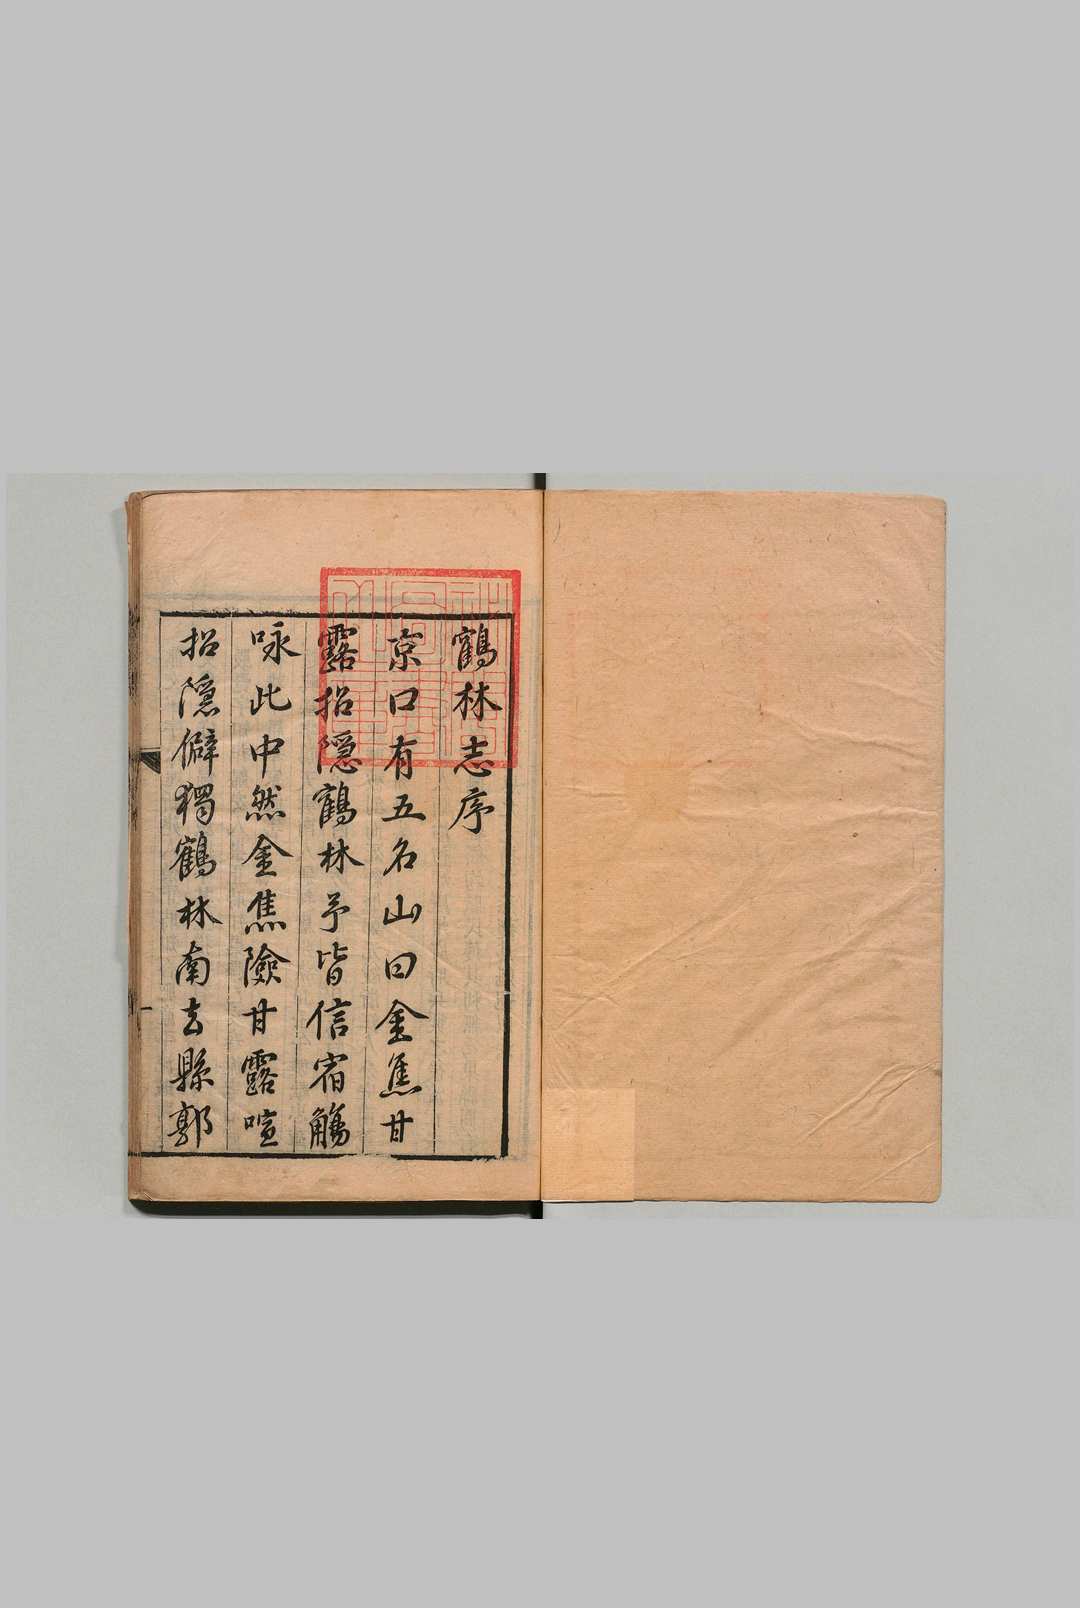 鶴林志序
京口有五名山曰金焦甘
露招隱鶴林予皆信宿觴
咏此中然金焦險甘露喧
招隱僻獨鶴林南去縣郭